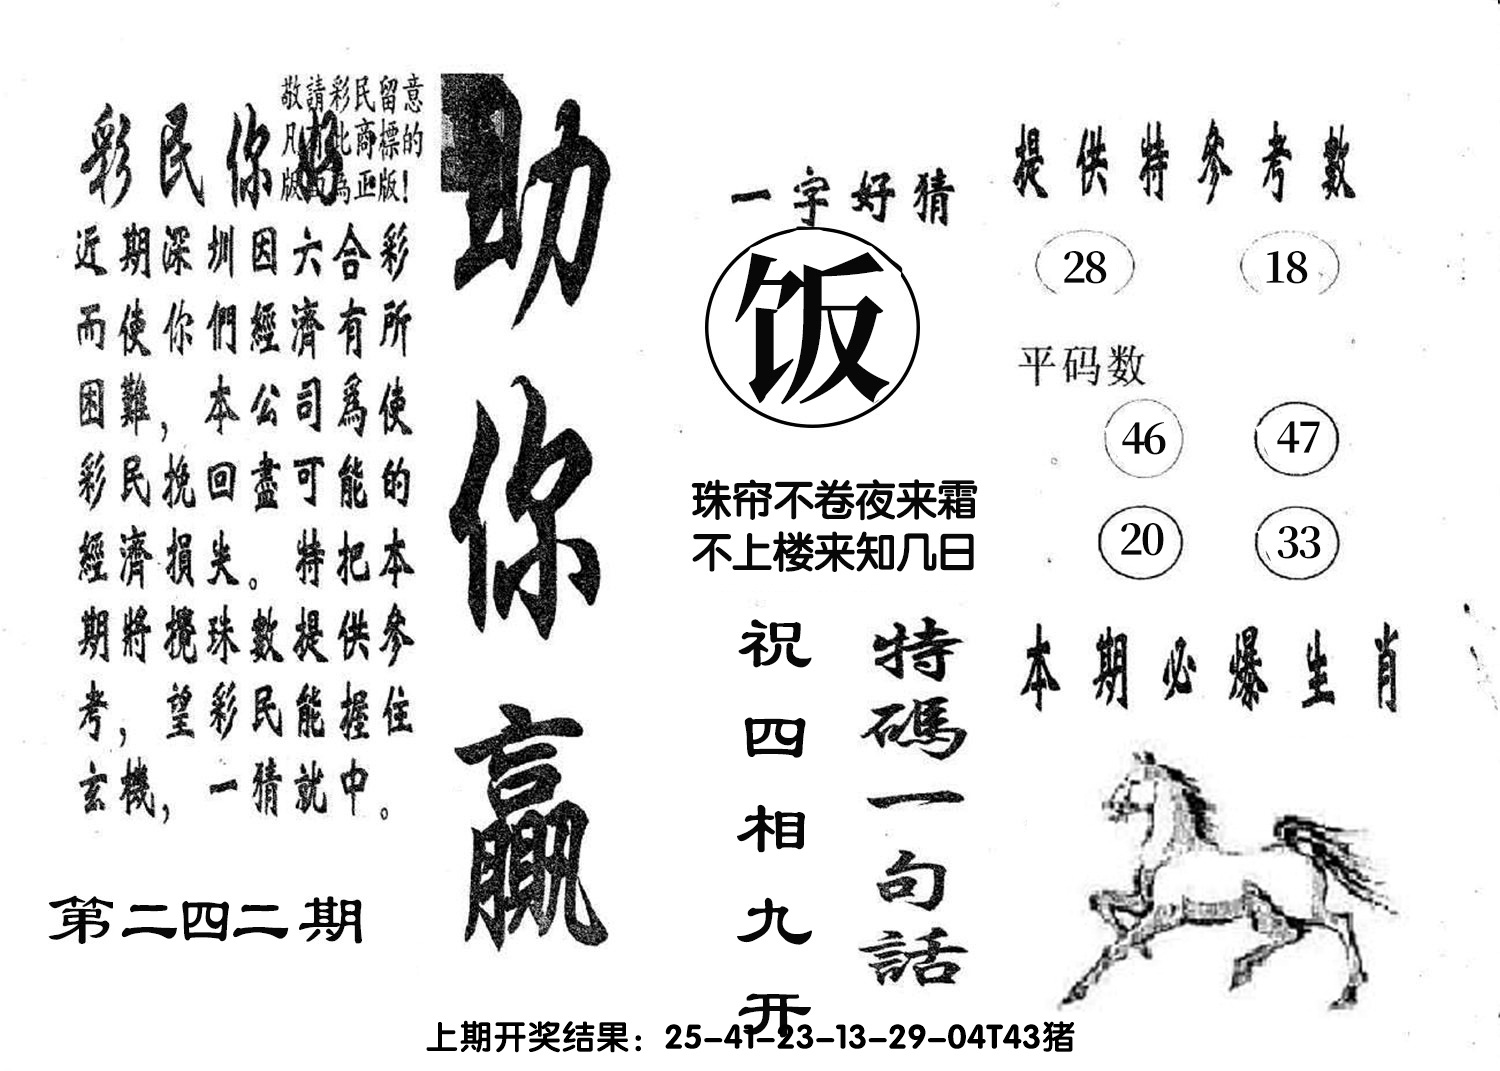 敬請彩民留意
凡有此商標的
版面為正版!
彩民你好
近期深圳因六合彩
而使你們經濟有所
困難，本公司爲使
彩民挽回盡可能的
經濟損失。特把本
期將攪珠數提供參
考，望彩民能握住
玄機，一猜就中。
第二四二期
助你贏
一字好猜
饭
珠帘不卷夜来霜
不上楼来知几日
特碼一句話
祝四相九开
提供特參考數
28 18
平码数
46 47
20 33
本期必爆生肖
上期开奖结果：25-41-23-13-29-04T43猪